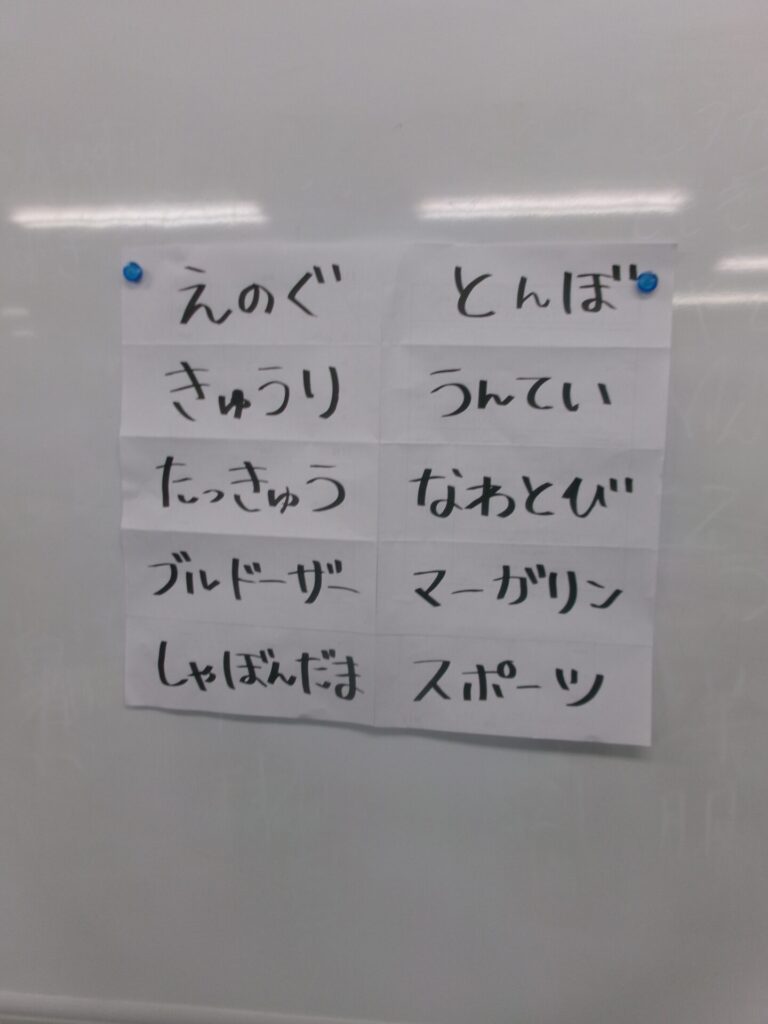 えのぐ とんぼ
きゅうり うんてい
たっきゅう なわとび
ブルドーザー マーガリン
しゃぼんだま スポーツ